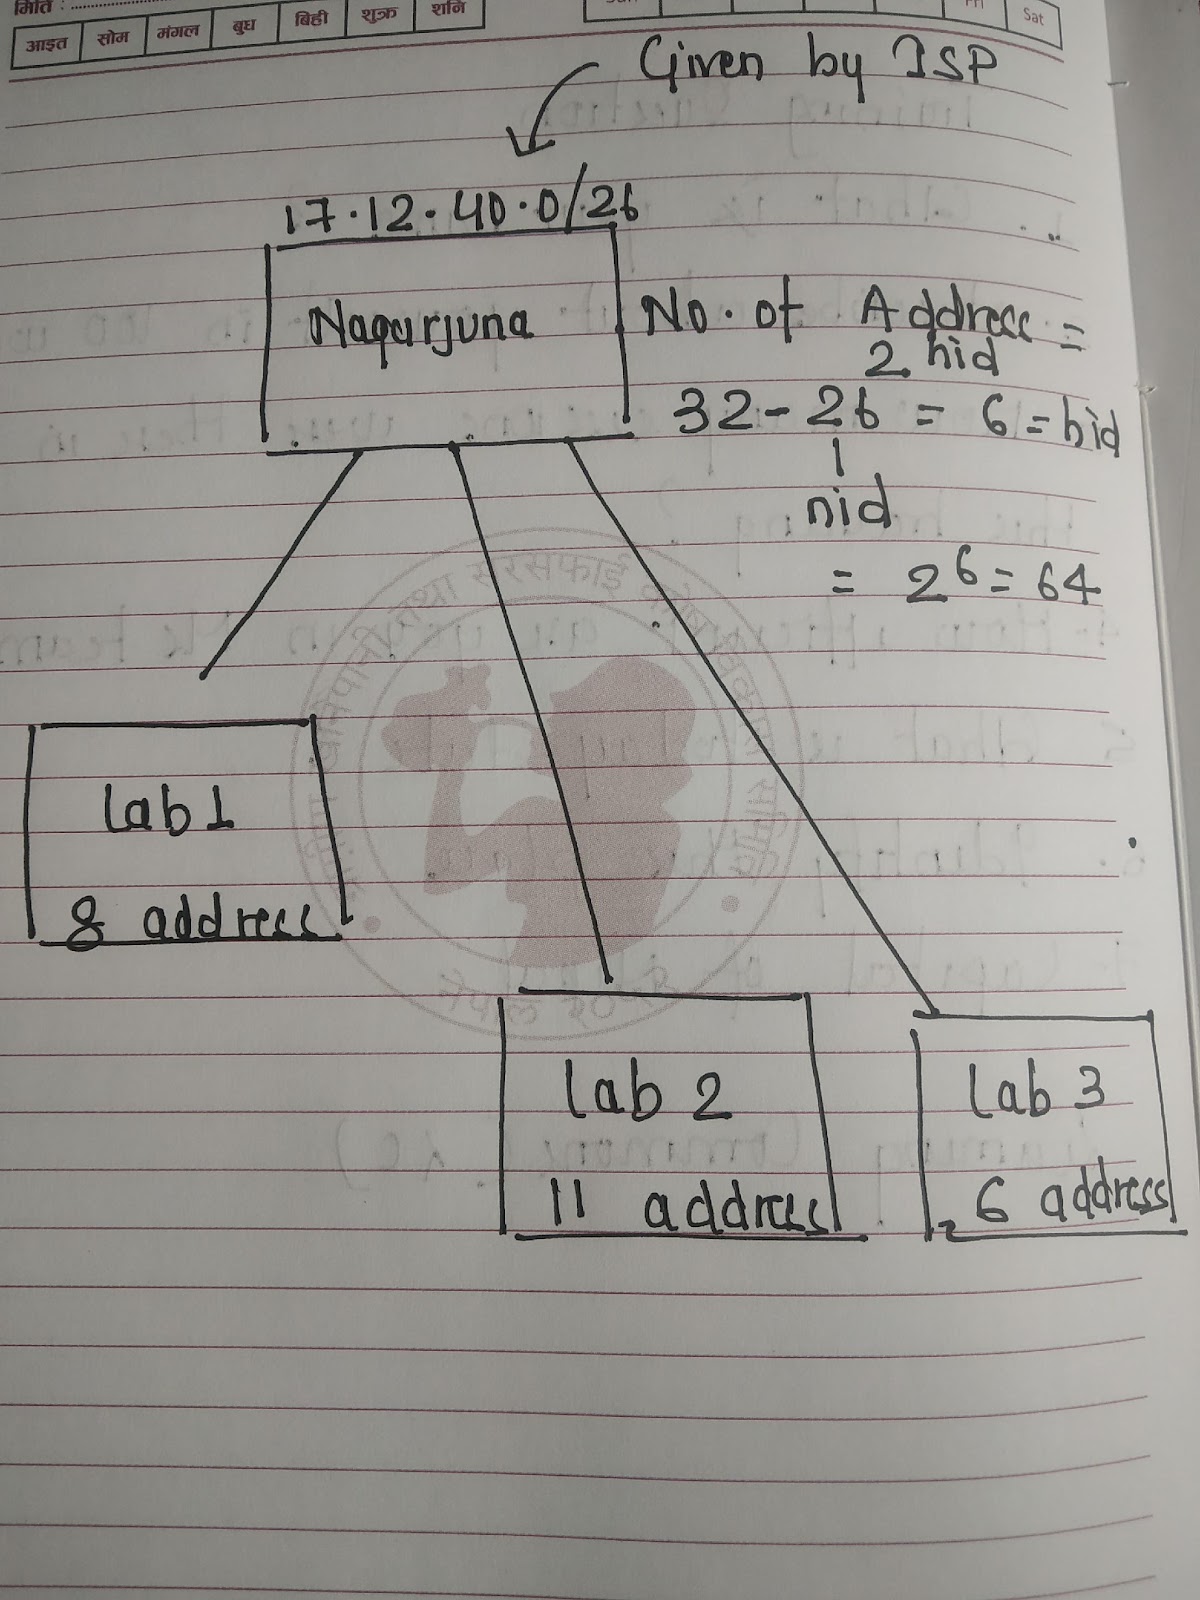 मिति :
आइत सोम मंगल बुध बिही शुक्र शनि
Fri Sat
Given by ISP
17.12.40.0/26
Nagarjuna
No. of Address =
2 hid
32 - 26 = 6 = hid
nid
= 2^6 = 64
Lab 1
8 address
Lab 2
11 address
Lab 3
6 address
नेपाल